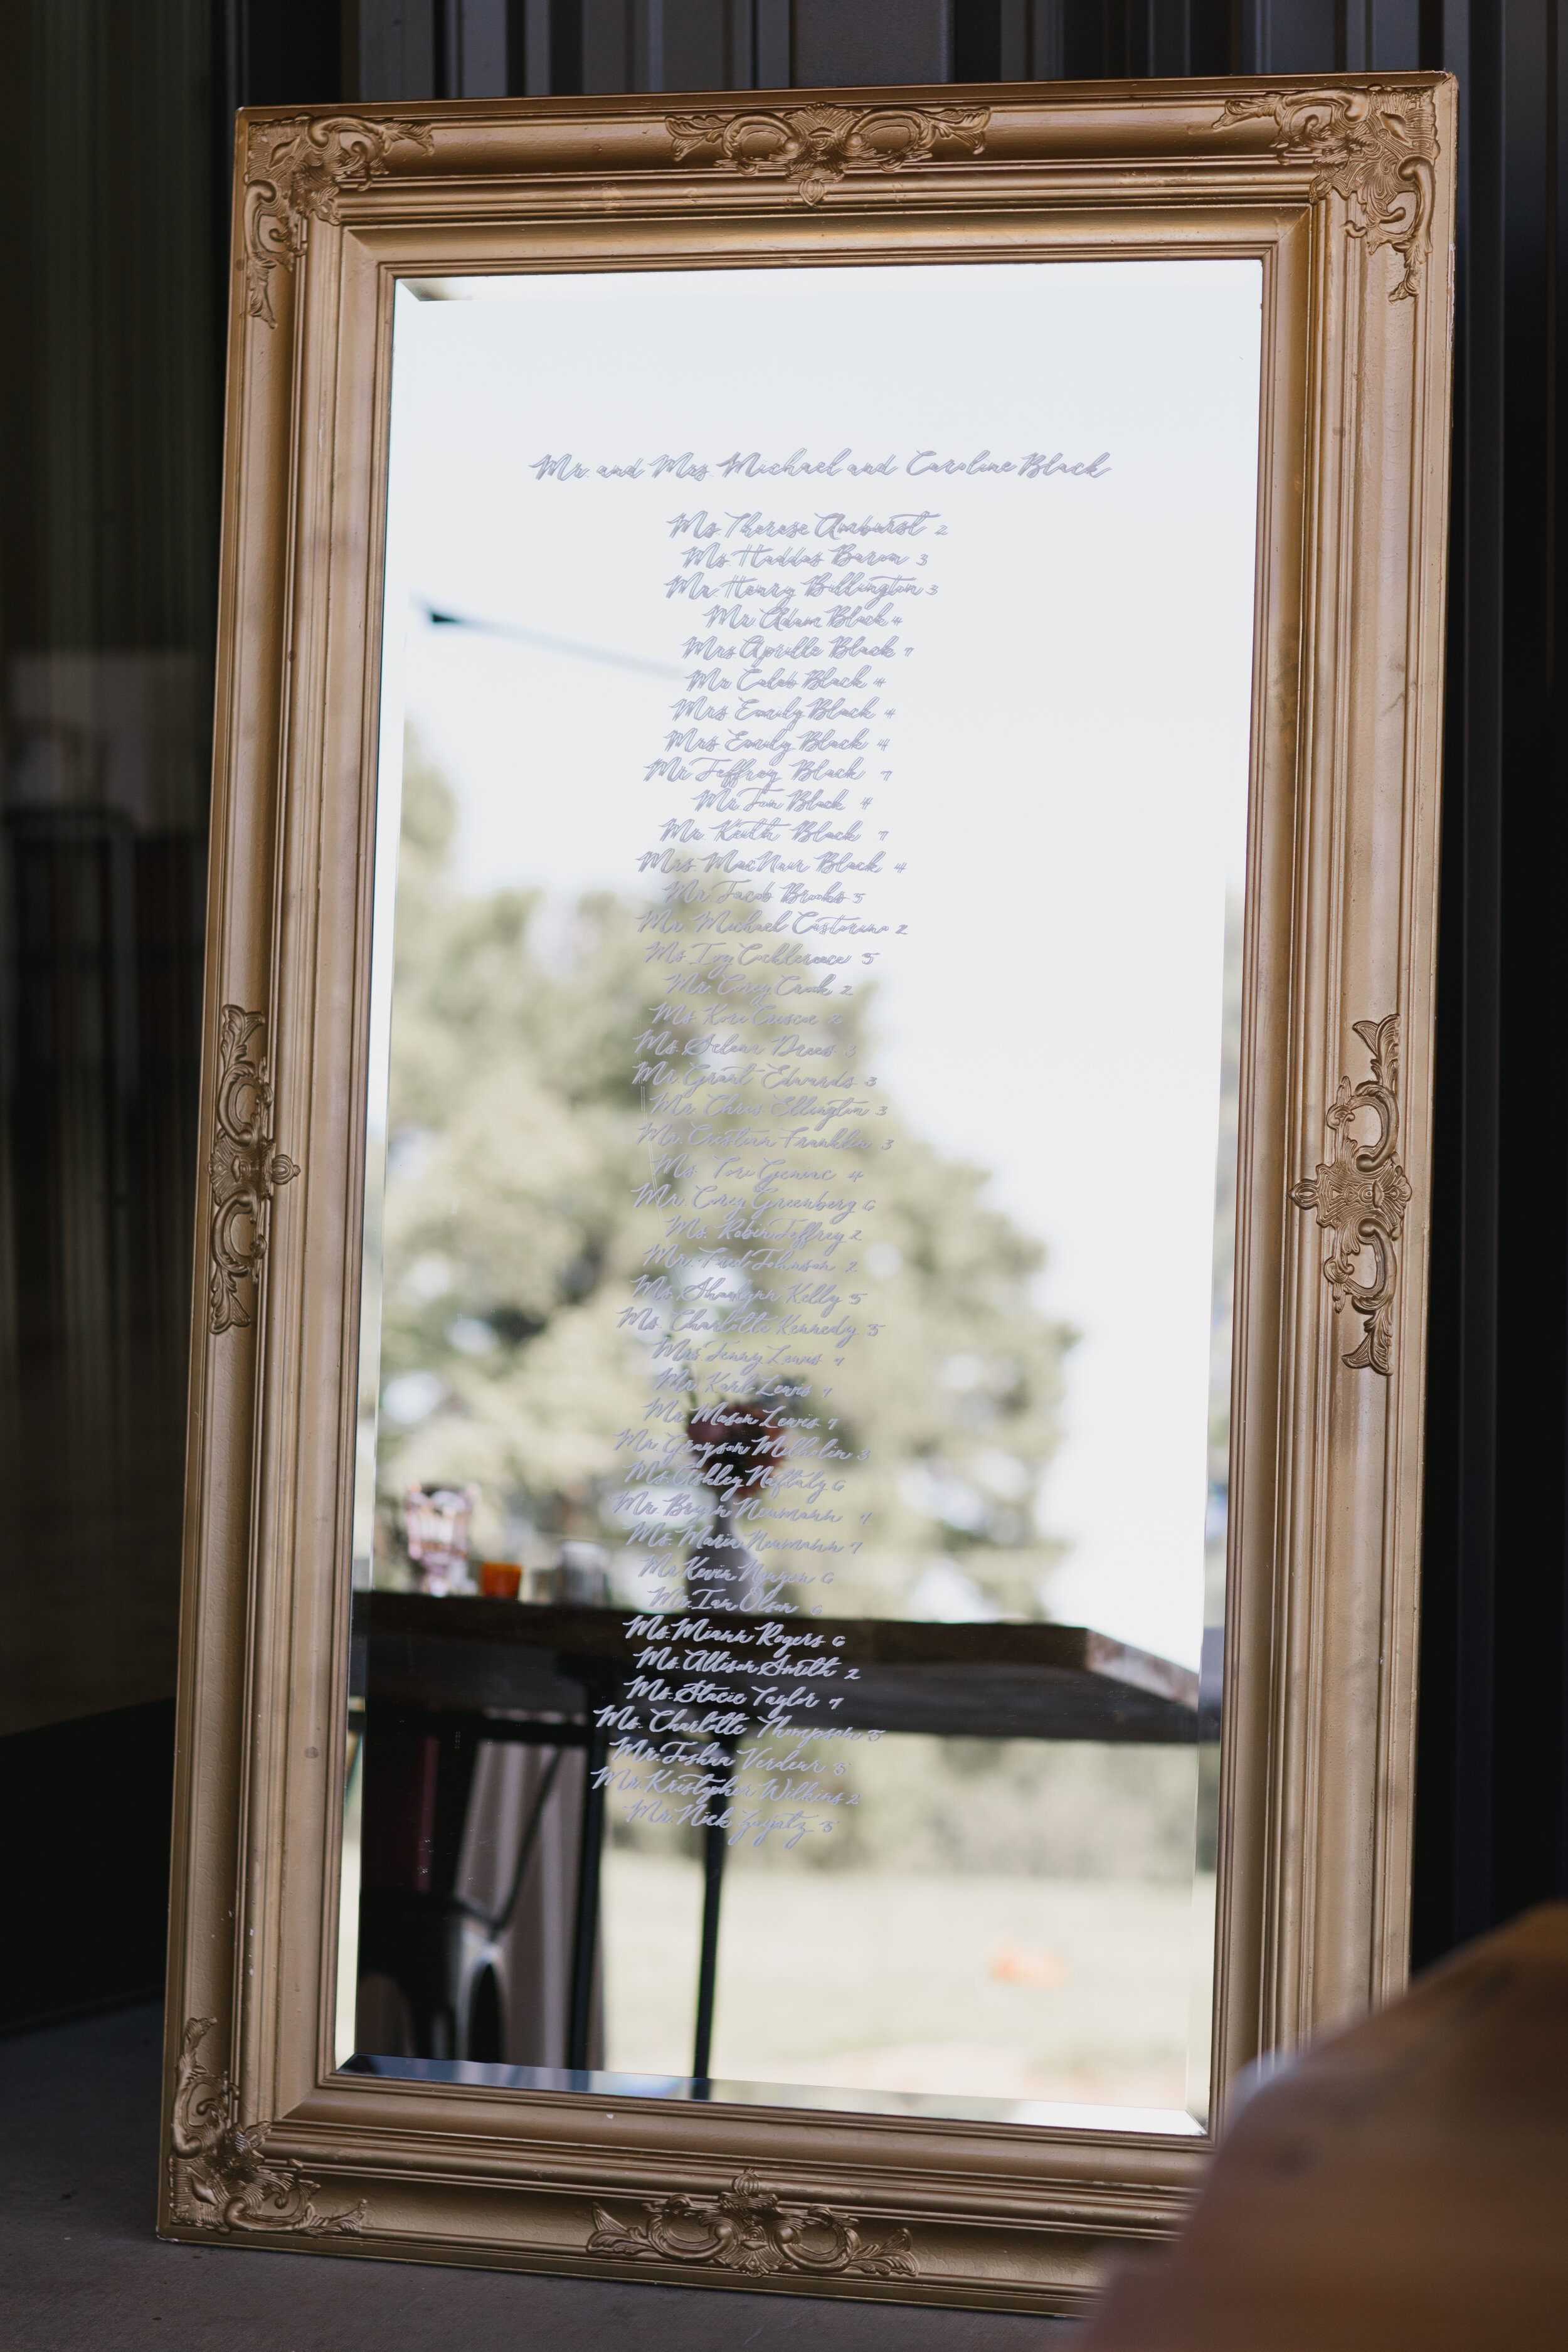 Mr. and Mrs. Michael and Caroline Black
Ms. Therese Amhurst 2
Ms. Haddas Baron 3
Mr. Henry Billington 3
Mr. Adam Black 4
Mrs. Aprille Black 7
Mr. Caleb Black 4
Mrs. Emily Black 4
Mrs. Emily Black 4
Mr. Jeffrey Black 7
Mr. Jim Black 4
Mr. Keith Black 7
Mrs. MacNair Black 4
Mr. Jacob Brooks 5
Mr. Michael Castorino 2
Ms. Ivy 5
Mr. Corey Crook 2
Ms. Kori Criscoe 2
Ms. Selena Drees 3
Mr. Grant Edwards 3
Mr. Chris Ellington 3
Mr. Cristian Franklin 3
Ms. Tori 4
Mr. Corey Greenberg 6
Ms. Robin Jeffrey 2
Mr. Fred Johnson 2
Ms. Shaelynn Kelly 5
Ms. Charlotte Kennedy 5
Mrs. Jenny Lewis 7
Mr. Karl Lewis 7
Mr. Mason Lewis 7
Mr. Grayson 3
Ms. Ashley Neftaly 6
Mr. Bryan Neumann 7
Ms. Maria Neumann 7
Mr. Kevin Nguyen 6
Mr. Ian Olson 6
Ms. Miann Rogers 6
Ms. Allison Smith 2
Ms. Stacie Taylor 7
Ms. Charlotte Thompson 5
Mr. Joshua Verdeur 5
Mr. Kristopher Wilkins 2
Mr. Nick 5